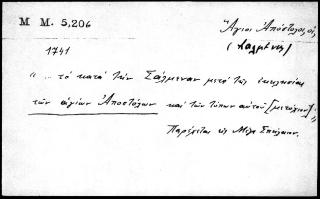 M M. 5,206
Ἅγιοι Ἀπόστολοι, οἱ,
(Σάλμενα)
1741
"... τὸ κατὰ τὴν Σάλμεναν μετὰ τῆς ἐκκλησίας
τῶν ἁγίων Ἀποστόλων καὶ τῶν τόπων αὐτοῦ [μετόχιον]"
Παρέχεται εἰς Μέγα Σπήλαιον.